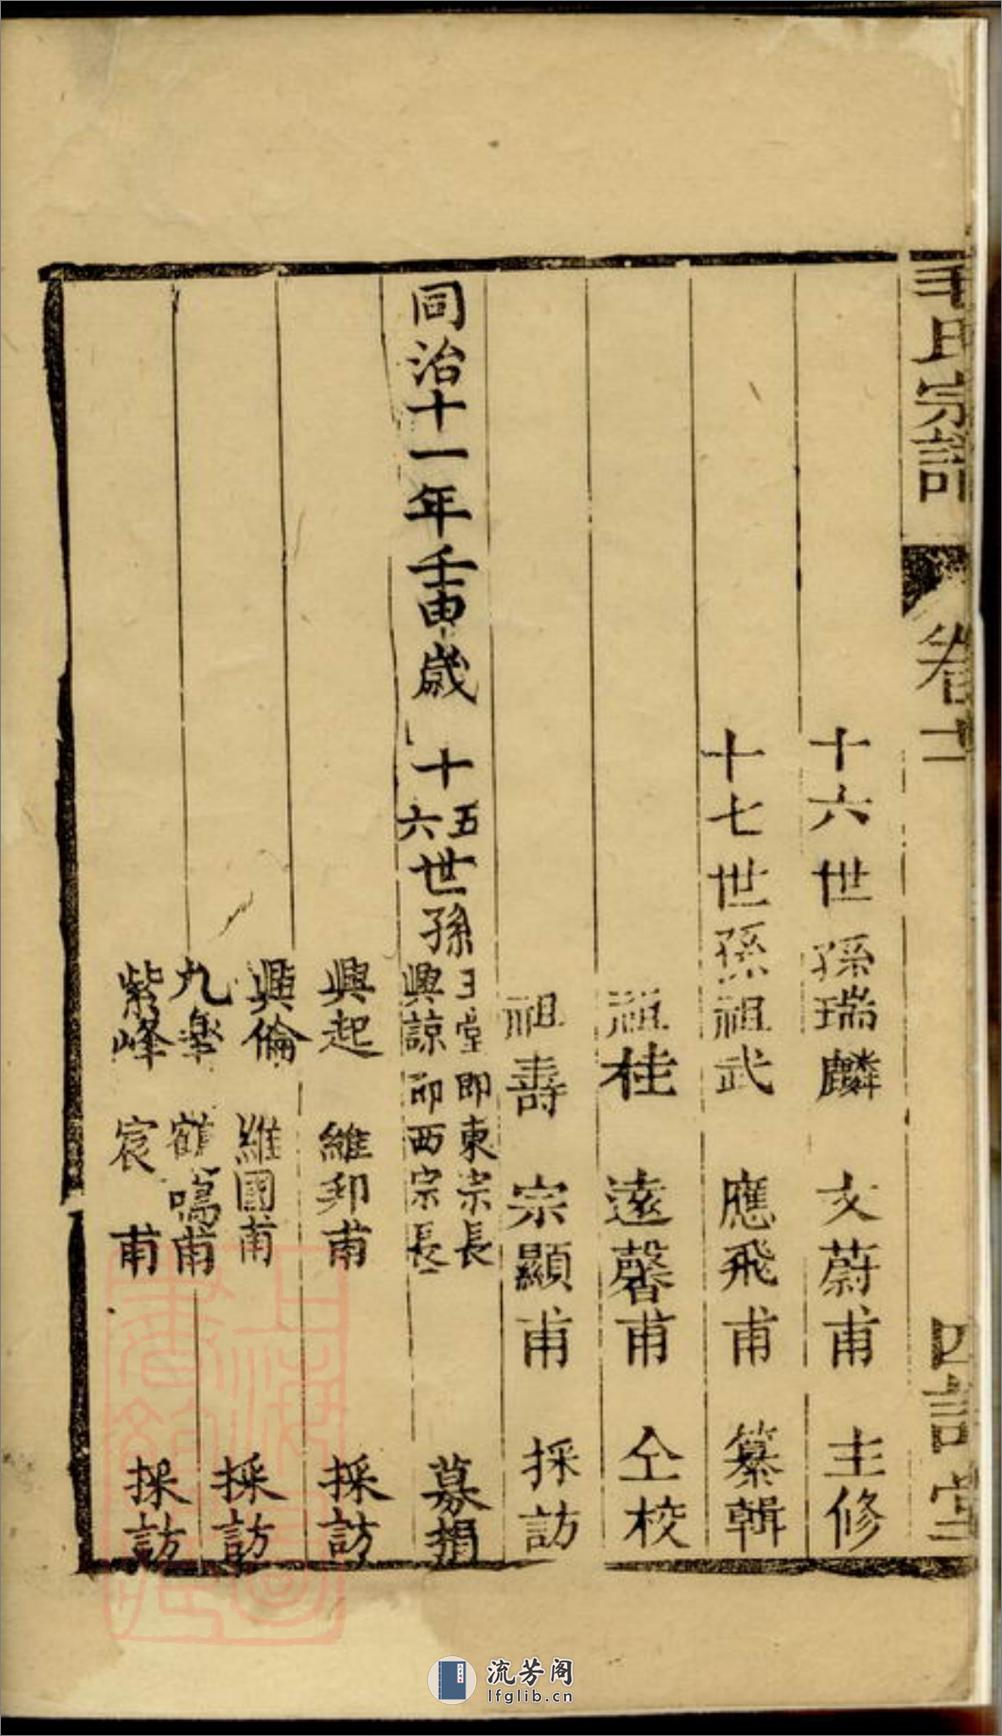 毛氏宗譜 卷十二 四詩堂
十六世孫瑞麟 文蔚甫 主修
十七世孫祖武 應飛甫 纂輯
祖桂 遠馨甫 仝校
祖壽 宗顯甫 採訪
同治十一年壬申歲 十五六世孫 玉堂即東宗長 興諒即西宗長 募捐
興起 維邦甫 採訪
興倫 維國甫 採訪
九皋 鶴鳴甫
紫峰 宸甫 採訪
上海圖書館藏
流芳阁
lfglib.cn